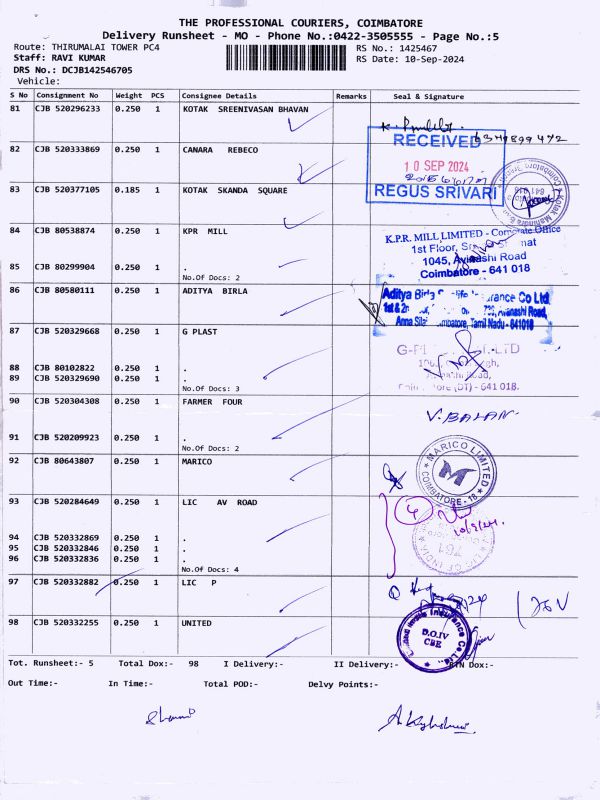 THE PROFESSIONAL COURIERS, COIMBATORE
Delivery Runsheet - MO - Phone No.:0422-3505555 - Page No.:5
Route: THIRUMALAI TOWER PC4 RS No.: 1425467
Staff: RAVI KUMAR RS Date: 10-Sep-2024
DRS No.: DCJB142546705
Vehicle:
S No Consignment No Weight PCS Consignee Details Remarks Seal & Signature
81 CJB 520296233 0.250 1 KOTAK SREENIVASAN BHAVAN
RECEIVED
82 CJB 520333869 0.250 1 CANARA REBECO
10 SEP 2024
83 CJB 520377105 0.185 1 KOTAK SKANDA SQUARE
REGUS SRIVARI
84 CJB 80538874 0.250 1 KPR MILL
K.P.R. MILL LIMITED - Corporate Office
1st Floor,
1045, Avinashi Road
Coimbatore - 641 018
85 CJB 80299904 0.250 1 .
No.Of Docs: 2
86 CJB 80580111 0.250 1 ADITYA BIRLA
Aditya Birla Insurance Co Ltd
1st & 2n Avanashi Road,
Anna Tamil Nadu - 641018
87 CJB 520329668 0.250 1 G PLAST
LTD
88 CJB 80102822 0.250 1 .
89 CJB 520329690 0.250 1 .
No.Of Docs: 3
(DT) - 641 018.
90 CJB 520304308 0.250 1 FARMER FOUR
V. BALAN
91 CJB 520209923 0.250 1 .
No.Of Docs: 2
92 CJB 80643807 0.250 1 MARICO
MARICO LIMITED
COIMBATORE - 18
93 CJB 520284649 0.250 1 LIC AV ROAD
4
10/9/24.
94 CJB 520332869 0.250 1 .
95 CJB 520332846 0.250 1 .
96 CJB 520332836 0.250 1 .
No.Of Docs: 4
761
97 CJB 520332882 0.250 1 LIC P
98 CJB 520332255 0.250 1 UNITED
Insurance Co Ltd.
D.O.IV
CBE
Tot. Runsheet:- 5 Total Dox:- 98 I Delivery:- II Delivery:- RTN Dox:-
Out Time:- In Time:- Total POD:- Delvy Points:-